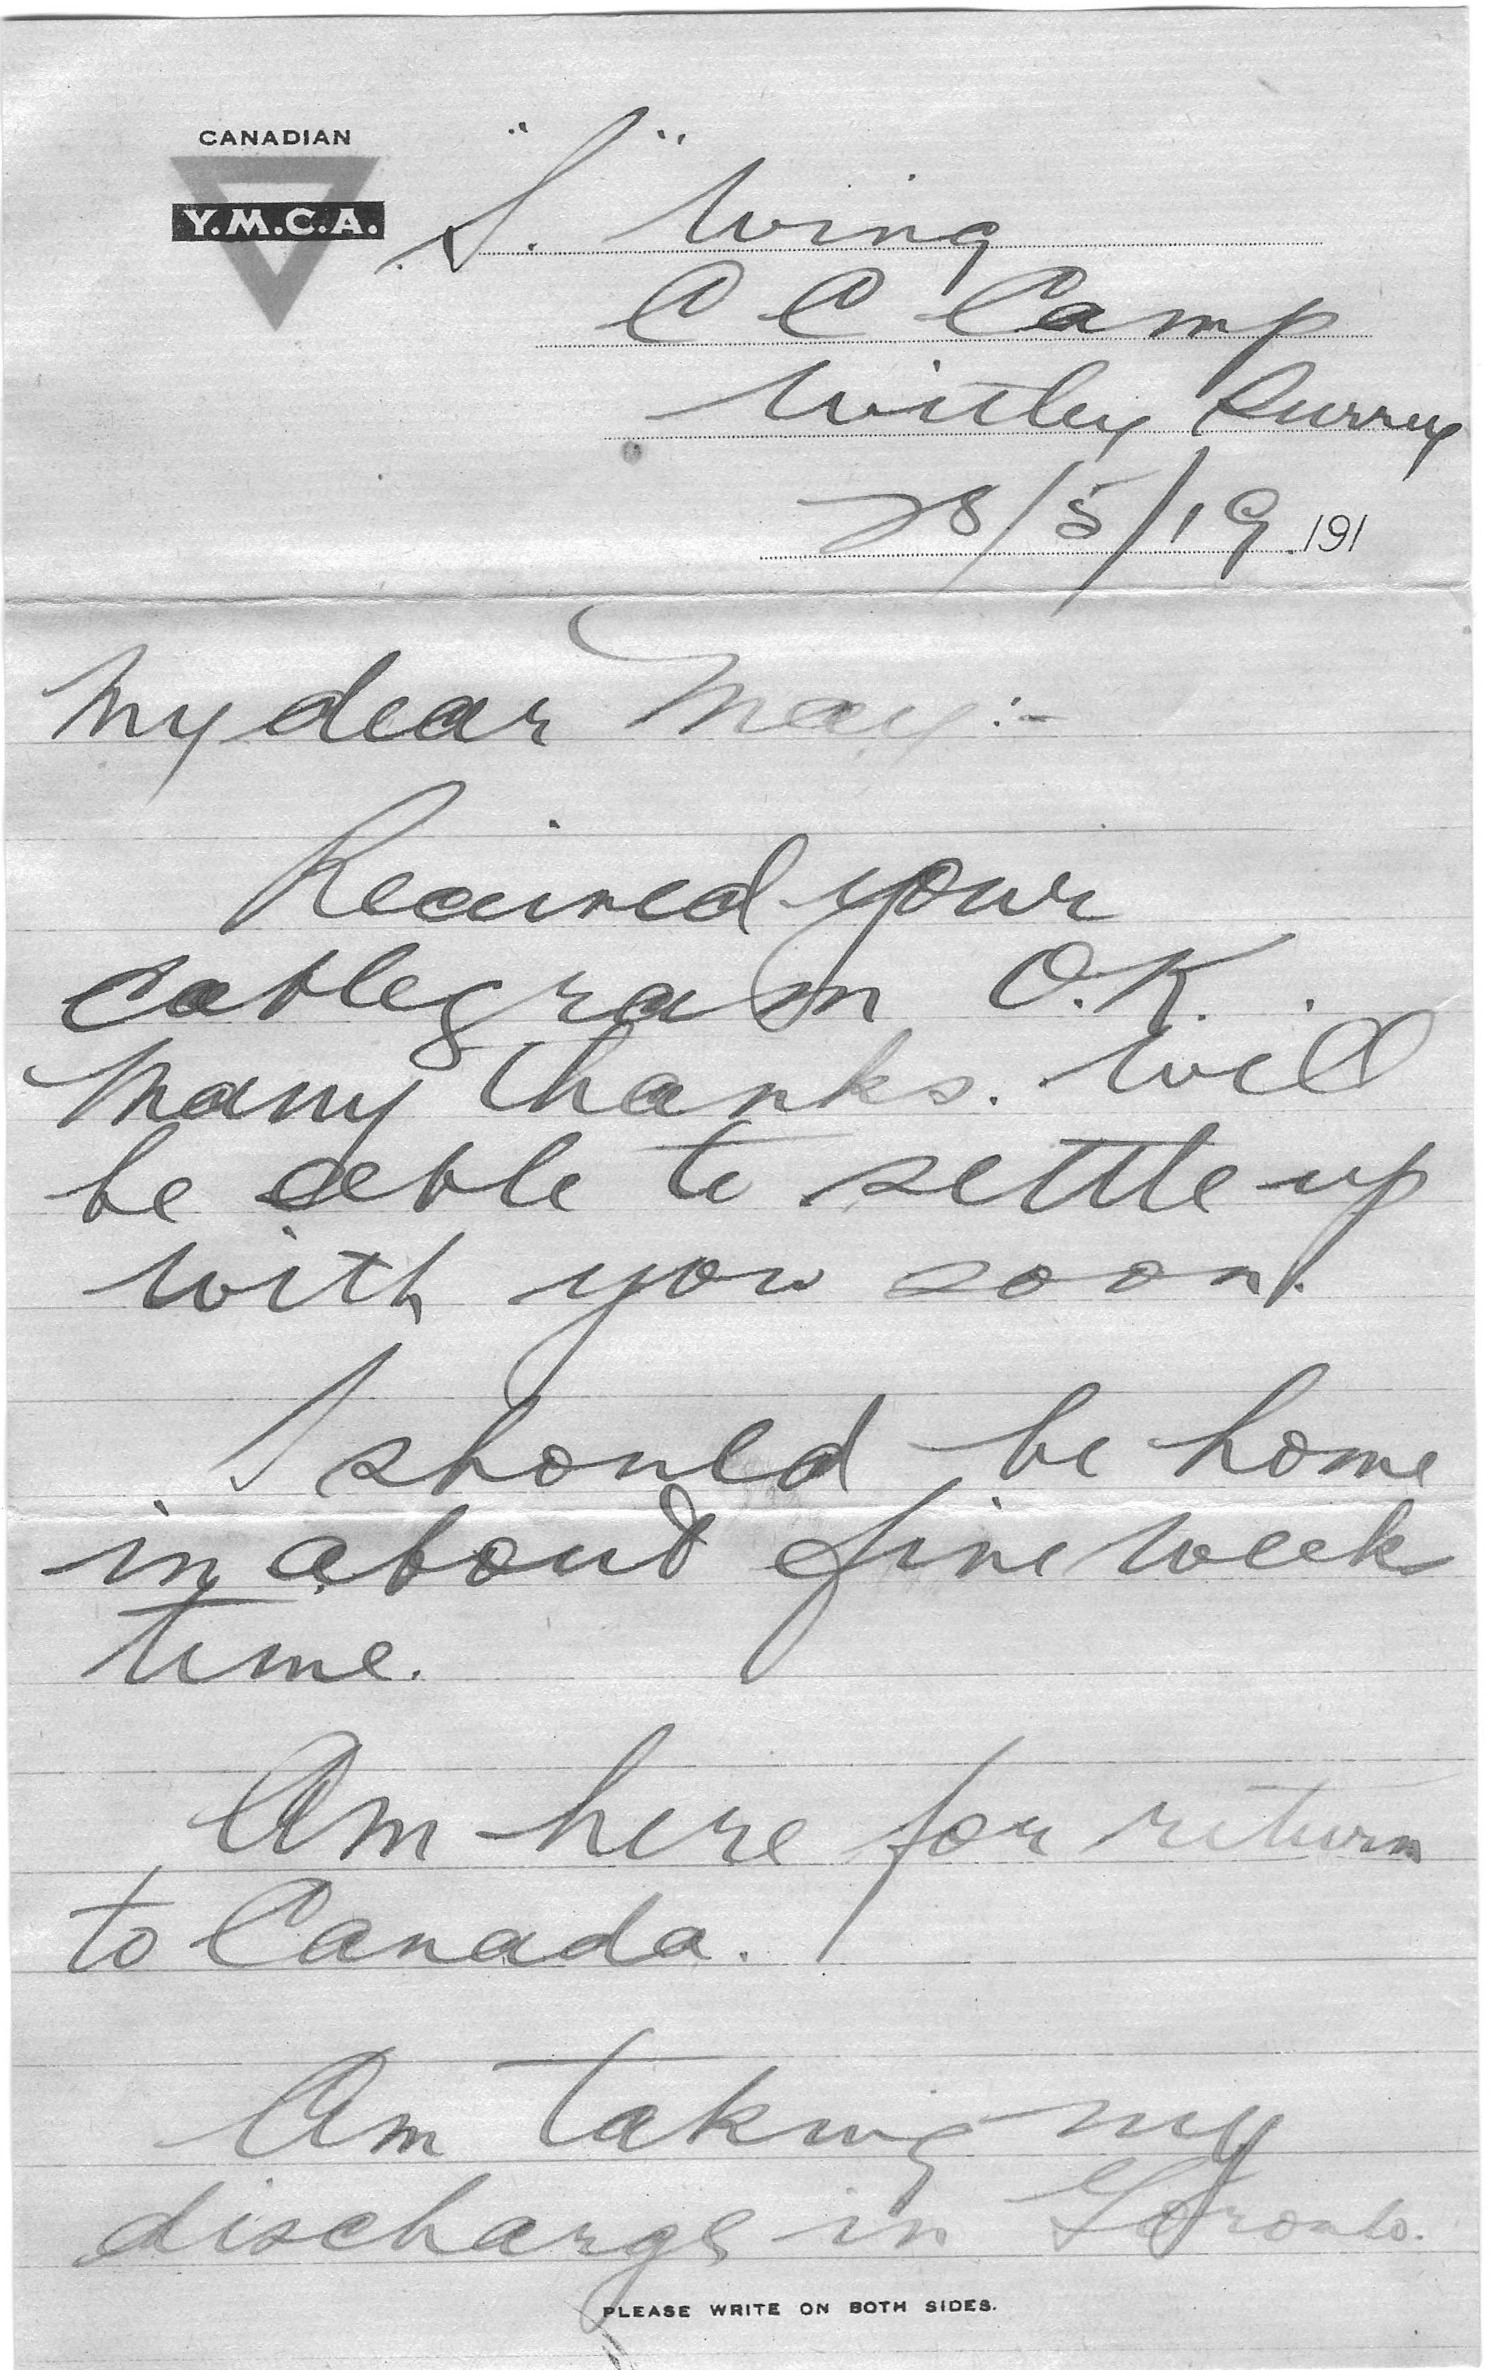 CANADIAN
Y.M.C.A.
"S." Wing
C C Camp
Witley Surrey
28/5/19 191
My dear May:-
Received your
cablegram O.K.
Many thanks. Will
be able to settle up
with you soon.
I should be home
in about five weeks
time.
Am here for return
to Canada.
Am taking my
discharge in Toronto.
PLEASE WRITE ON BOTH SIDES.